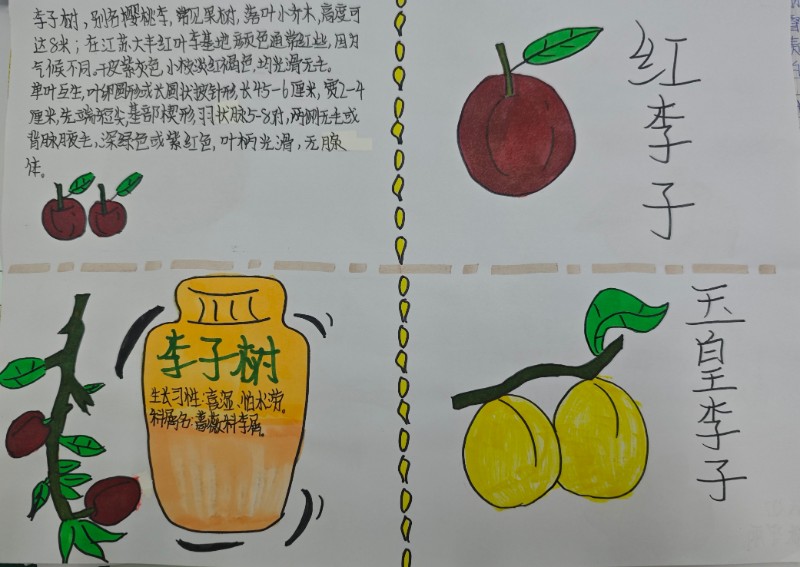 李子树，别名樱桃李，常见果树，落叶小乔木，高度可
达8米；在江苏大丰红叶李基地颜色通常红些，因为
气候不同。干皮紫灰色，小枝淡红褐色，均光滑无毛。
单叶互生，叶卵圆形或长圆状披针形，长4.5-6厘米，宽2-4
厘米，先端短尖，基部楔形，羽状脉5-8对，两侧无毛或
背脉腋毛，深绿色或紫红色，叶柄光滑，无腺
体。
红李子
李子树
生长习性：喜湿，怕水涝。
科属名：蔷薇科李属。
玉皇李子